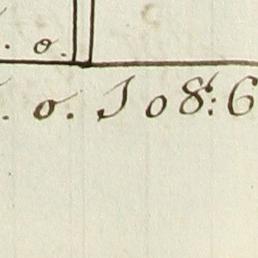 . o.
. o. J o8: 6